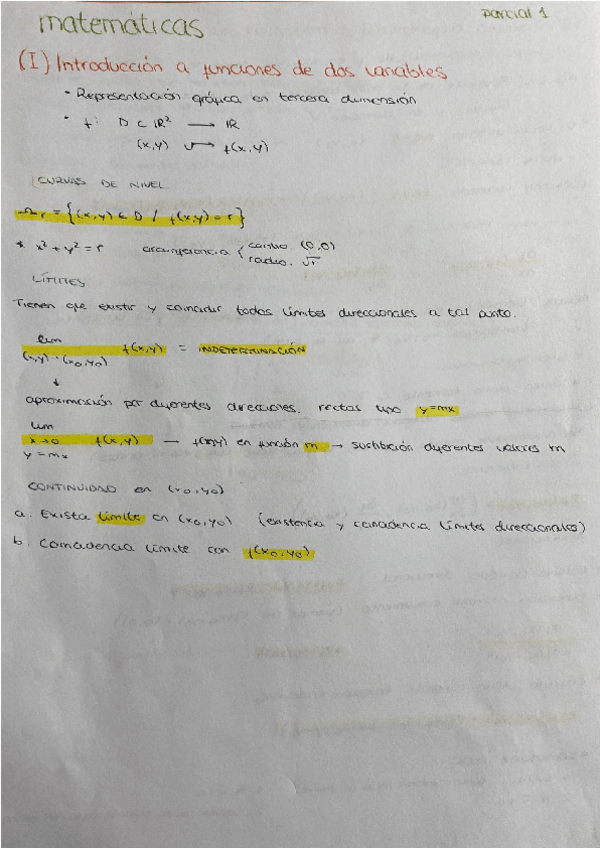 matemáticas
parcial 1
(I) Introducción a funciones de dos variables
• Representación gráfica en tercera dimensión
• f: D ⊂ ℝ² → ℝ
(x,y) ↦ f(x,y)
CURVAS DE NIVEL
Ωr = {(x,y) ∈ D / f(x,y) = r}
* x² + y² = r circunferencia { centro. (0,0)
radio. √r
LÍMITES
Tienen que existir y coincidir todos límites direccionales a tal punto.
lim f(x,y) = INDETERMINACIÓN
(x,y)→(x₀,y₀)
↓
aproximación por diferentes direcciones. rectas tipo y=mx
lim
x→0 f(x,y) → f(x,y) en función m → sustitución diferentes valores m
y = mx
CONTINUIDAD en (x₀,y₀)
a. Exista límite en (x₀,y₀) (existencia y coincidencia límites direccionales)
b. Coincidencia límite con f(x₀,y₀)